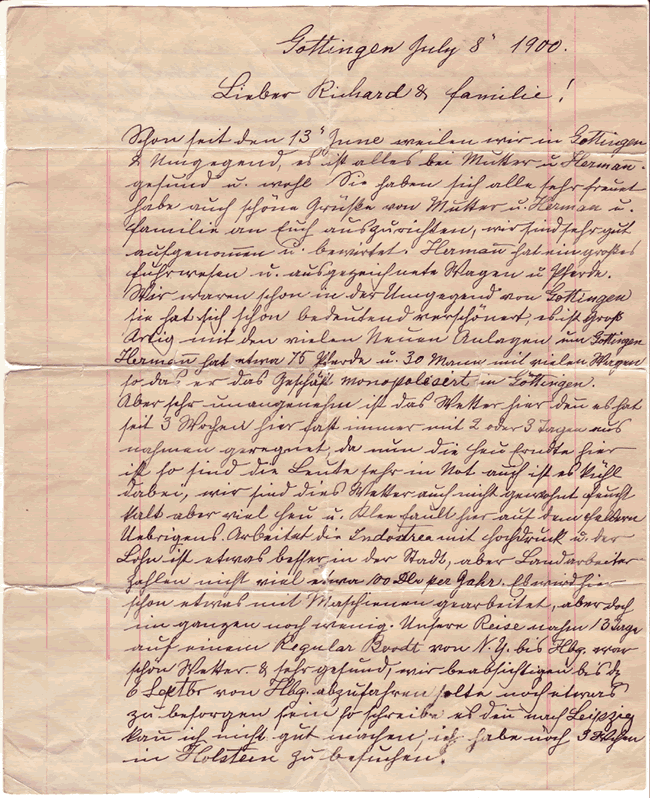 Gottingen July 8" 1900.
Lieber Richard & familie!
Schon seit den 13" June weilen wir in Gottingen
& Umgegend, es ist alles bei Mutter u. Herman.
gesund u. wohl Sie haben sich alle sehr freuet
habe auch schöne Grüße von Mutter u. Herman u.
familie an Euch auszurichten, wir sind sehr gut
aufgenom̄en u. bewirtet. Herman̄ hat ein großes
fuhrwesen u. ausgezeichnete Wagen u. Pferde.
Wir waren schon in der Umgegend von Gottingen
sie hat sich schön bedeutend verschönert, es ist Groß
Artig mit den vielen Neuen Anlagen um Gottingen
Herman̄ hat etwa 75 Pferde u. 30 Mann mit vielen Wagen
so das er das Geschäft monopolisiert in Göttingen.
Aber sehr unangenehm ist das Wetter hier den̄ es hat
seit 3 Wochen hier fast immer mit 2 oder 3 Tagen aus
nahmen geregnet, da nun die heu Erndte hier
ist so sind die Leute sehr in Not auch ist es kühl
dabei, wir sind dies Wetter auch nicht gewohnt feucht
kalt aber viel heu u. Klee fault hier auf dem feldern
Uebrigens. Arbeitet die Indostrea mit hochdruck u. der
Lohn ist etwas besser in der Stadt, aber Landarbeiter
zahlen nicht viel etwa 100 Dlls per Jahr. Es wird hier
schon etwas mit Maschienen gearbeitet, aber doch
im ganzen noch wenig. Unsere Reise nahm 13 Tage
auf einem Regular Boodt von N.Y. bis Hbg. war
schön Wetter. & sehr gesund, wir beabsichtigen bis de
6 Septbr von Hbg. abzufahren, solte noch etwas
zu besorgen sein so schreibe es den̄ nach Leipzig
kan̄ ich nicht gut machen, ich habe noch 3
in Holstein zu besuchen.